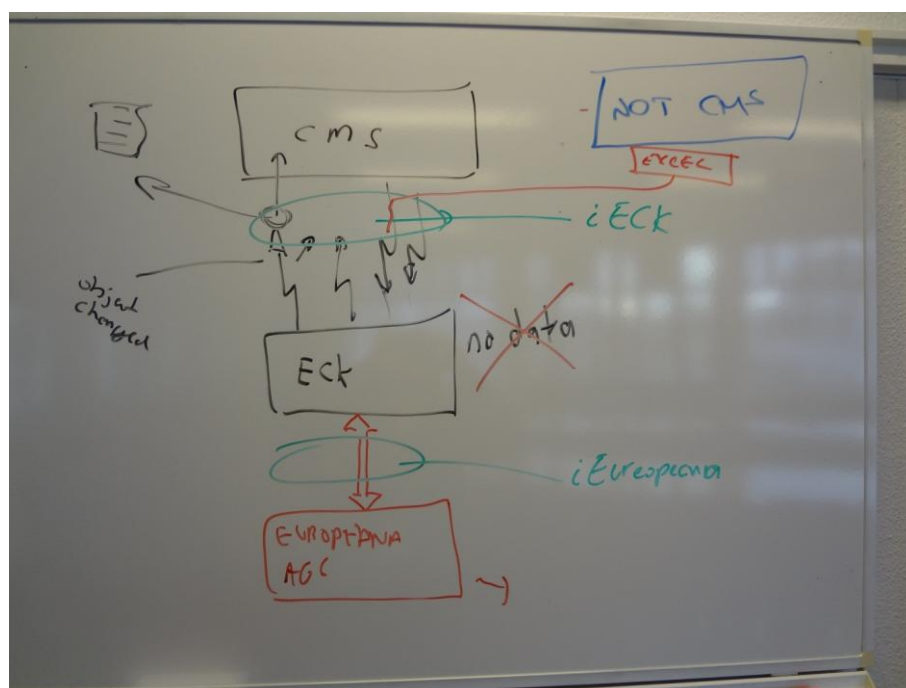 CMS
NOT CMS
EXCEL
iECK
object
changed
ECK
no data
iEuropeana
EUROPEANA
AGG